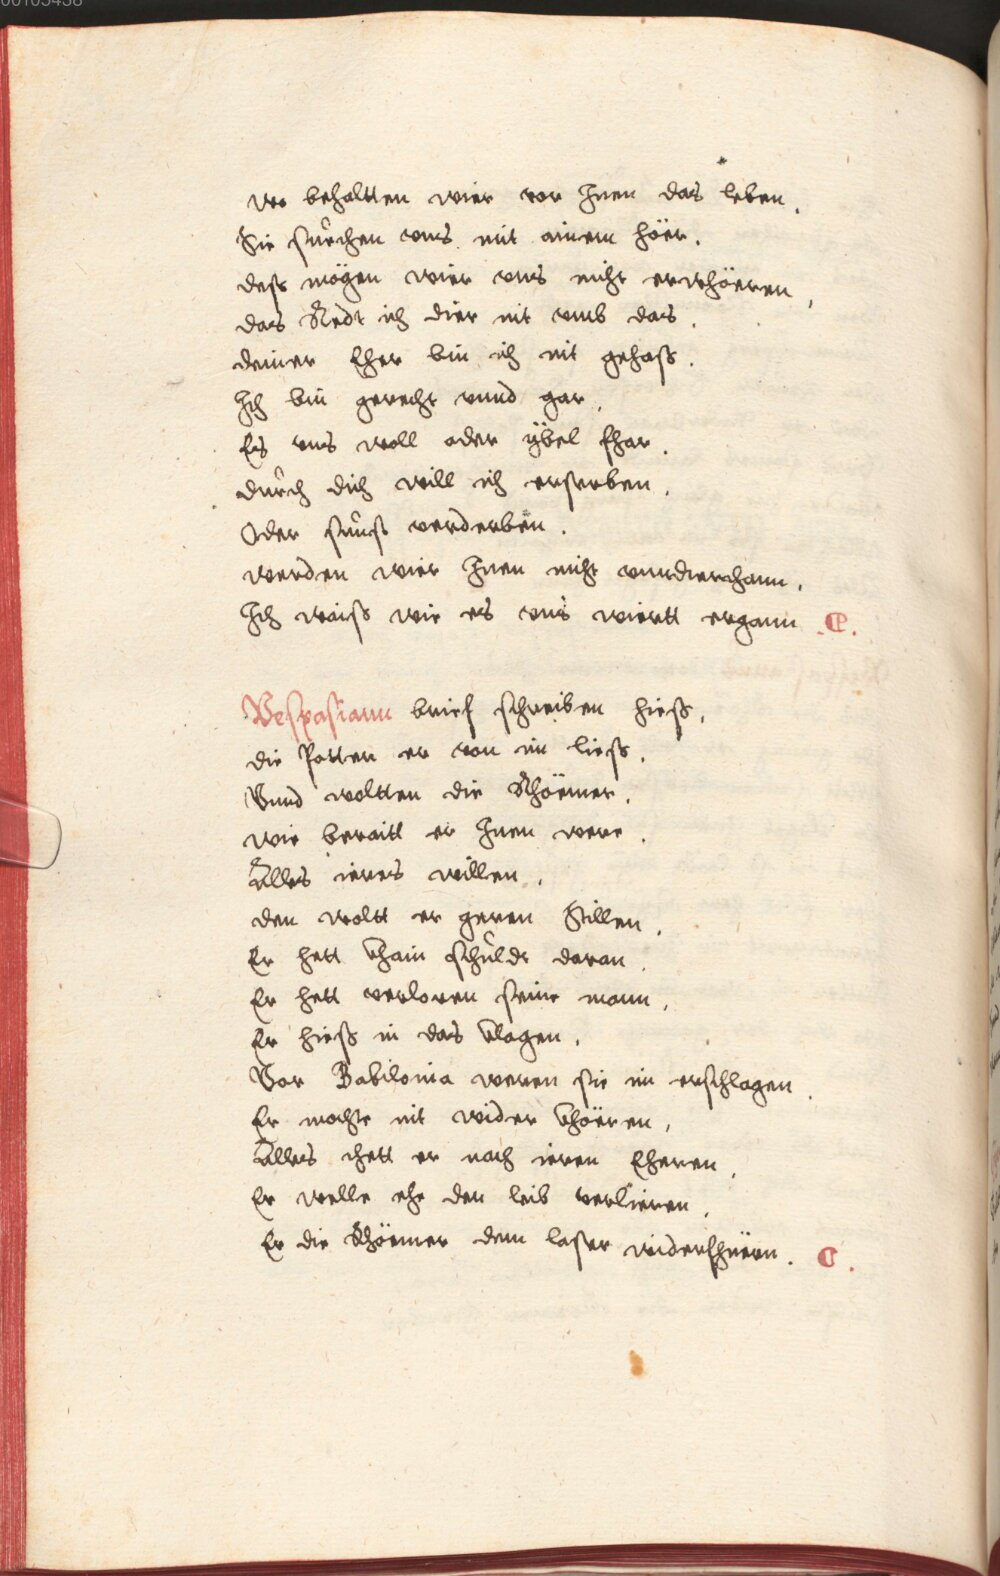 00105438
wo behaltten wier vor Inen das leben.
Sie suechen vns mit ainem höer.
dess mögen wier vns nicht erwhöeren,
das Redt ich dier nit vmb das.
deiner Eher bin ich nit gehass.
Ich bin gerecht vnnd gar.
Es vns woll oder ybel fhar.
durch dich will ich ersterben.
Oder sunst verderben.
werden wier Inen nicht vnnderthann.
Ich waiss wie es vns wiertt ergann.
Vespasiann brief schreiben hiess.
die Potten er von im liess.
Vnnd woltten die Rhöemer.
wie beraitt er Inen were.
Alles ieres willen.
den woltt er geren Stillen.
Er hett khain schuldt daran.
Er hett verloren seine mann.
Er hiess in das klagen.
Vor Babilonia weren sie im erschlagen.
Er mochte nit wider khöeren,
Alles thett er nach ieren Eheren.
Er welle ehe den leib verlieren.
Er die Rhöemer dem laster widerfhüern.